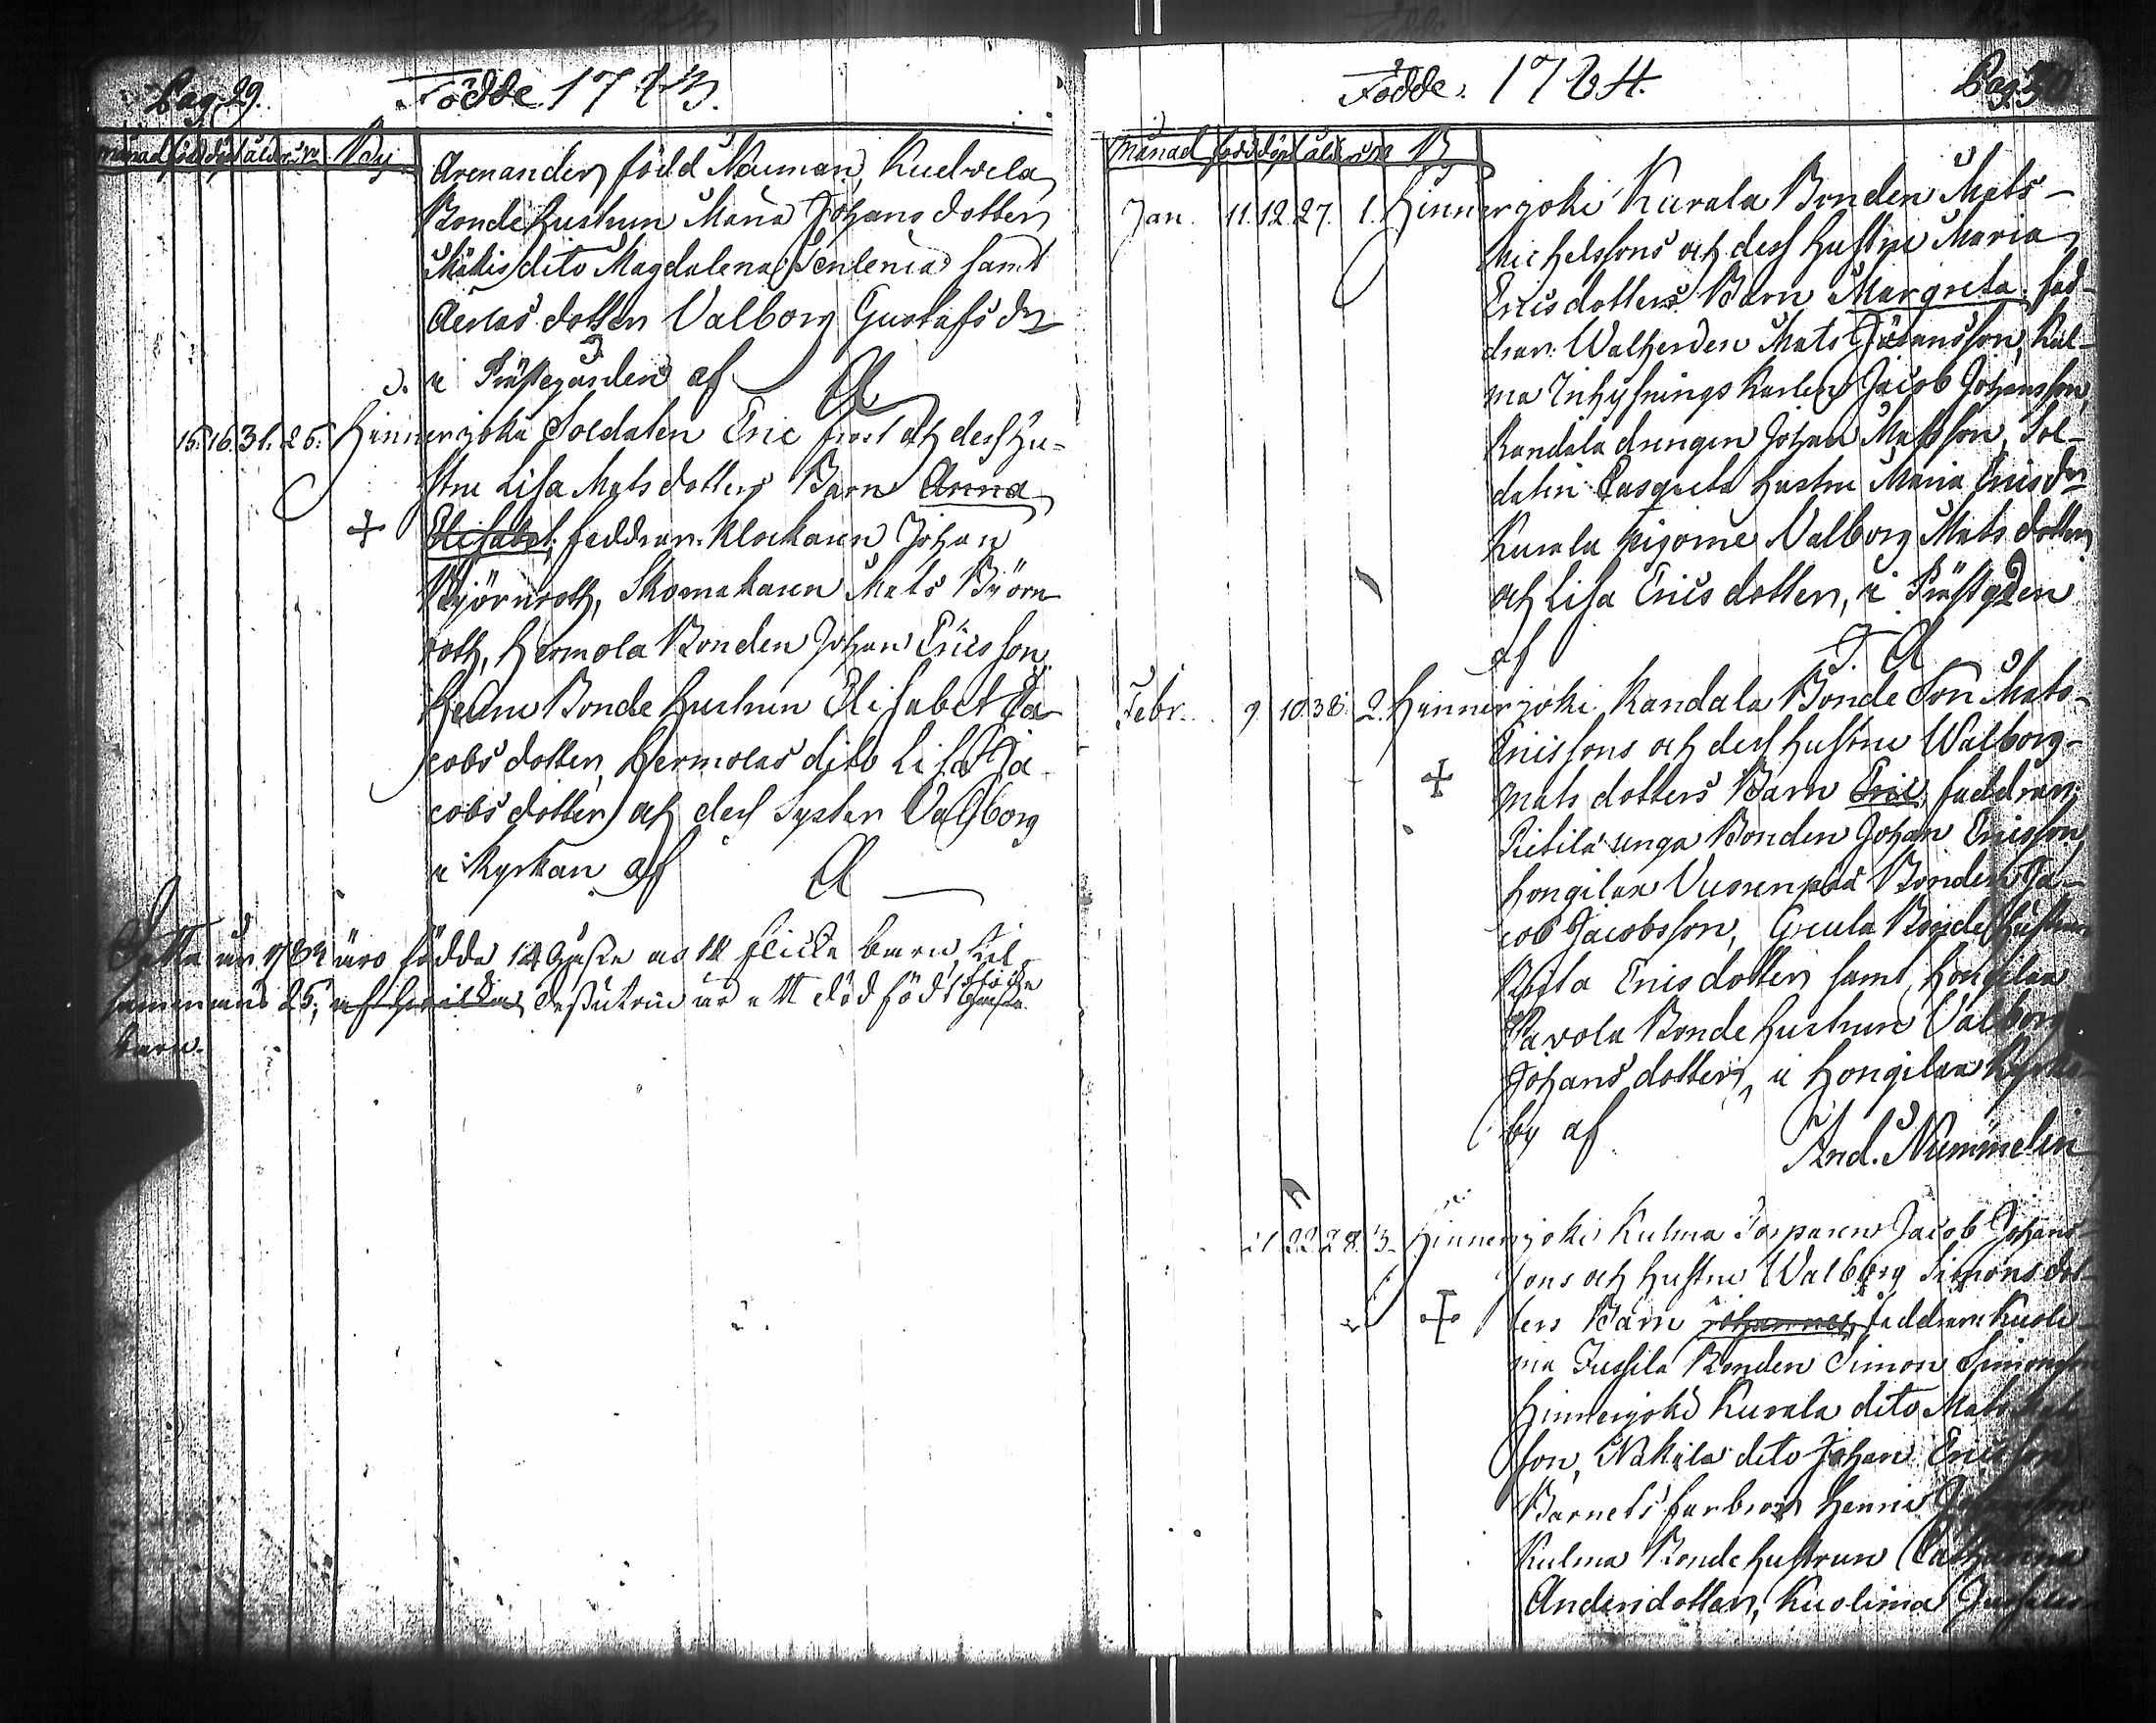 Pag. 29. Födde 1783.
månad född döpt ålder No By
Arenander, född Neuman, Kuckvela
Bondehustrun Maria Johansdotter
dito Magdalena Senlenia samt
dotter Valborg Gustafsdr
i Prästegården af A
15. 16. 31. 25. Hinnerjoki Soldaten Eric frost och dess hu-
stru Lisa Matsdotters Barn Anna
Elisabet, faddrar. Klockaren Johan
Björnroth, Skomakaren Mats Björn
roth, Hermola Bonden Johan Ericsson
Bonde hustrun Elisabet Ja-
cobsdotter, Hermolas dito Lisa Ja-
cobsdotter och dess Syster Valborg
i Kyrkan af A
Detta år 1783 äro födda 14 Gosse och 12 flicke barn, til
sammans 25; af hvilka desutom är ett död född flicke Gosse
barn.
Födde. 1784. Pag. 30
Månad född döpt ålder No B
Jan. 11. 12. 27. 1. Hinnerjoki Kurala Bonden Mats
Michelssons och dess hustru Maria
Ericsdotters Barn Margreta, fad-
drar. Walherden Mats Johansson, Kul-
ma Inhysnings Karlen Jacob Johansson,
Kandola drengen Johan Matsson, Sol-
daten Casquets hustru Maria Ericsdr
Kurala pigorne Valborg Matsdotter
och Lisa Ericsdotter, i Prästgden
af J. A
Febr. 9 10 38. 2. Hinnerjoki Kandala Bonde Son Mats
Ericssons och dess hustru Walborg
Matsdotters Barn Eric, faddrar.
Pietilä unga Bonden Johan Ericsson,
Hongilax Vuorenpää Bonden Ja-
cob Jacobsson, Bonde Hustrun
Ericsdotter samt Hongilax
Pavola Bonde hustrun Valborg
Johansdotter, i Hongilax Kyrko-
by af And. Nummelin
21 22 28. 3. Hinnerjoki Kulma Torparen Jacob Johans-
sons och hustru Walborg Simonsdot-
ters Barn Johannes, faddrar. Kuoli-
ma Jussila Bonden Simon Simonsson
Hinnerjoki Kurala dito Mats Mats-
son, Nakila dito Johan Ericsson
Barnets farbror Henric Johansson
Kulma Bonde hustrun Catharina
Andersdotter, Kuolima Jussilas